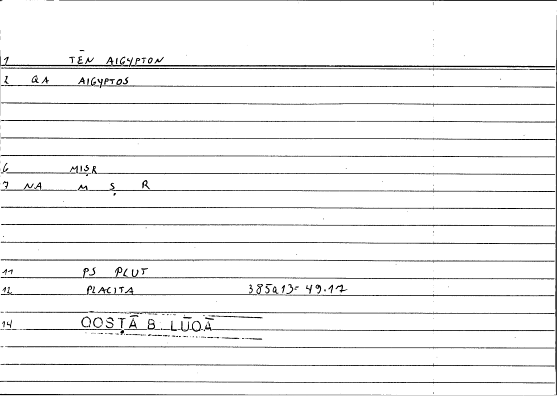 1 TĒN AIGYPTON
2 QA AIGYPTOS
6 MIṢR
7 NA M Ṣ R
11 PS PLUT
12 PLACITA 385a13= 49.17
14 QOSṬĀ B LŪQĀ